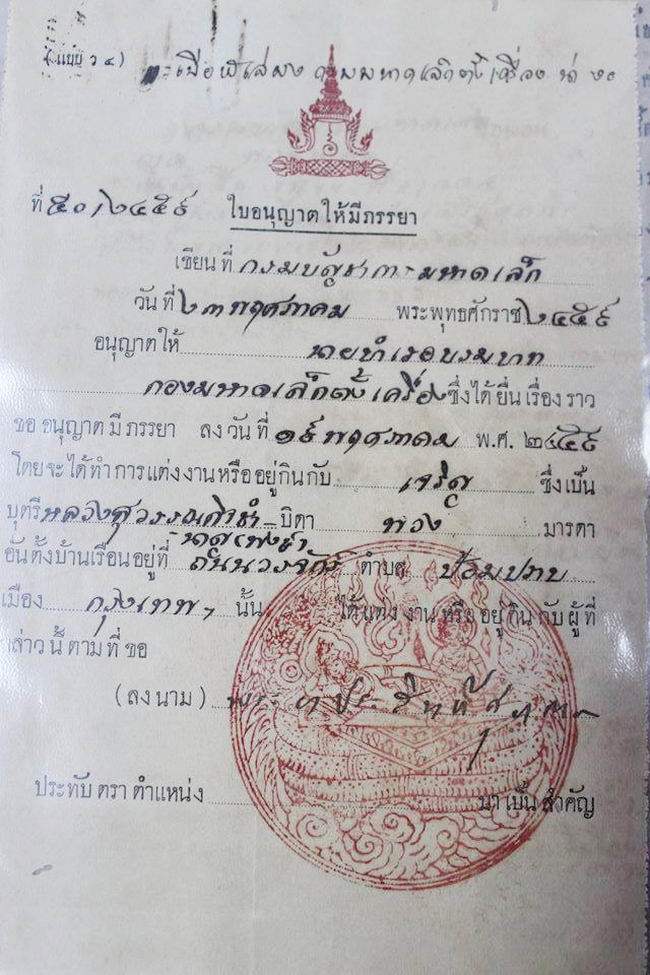 ( แบบ ว ๔ )
ที่ ๕๐/๒๔๕๙ ใบอนุญาตให้มีภรรยา
เขียนที่ กรมบัญชาการมหาดเล็ก
วันที่ ๒๓ พฤศภาคม พระพุทธศักราช ๒๔๕๙
อนุญาตให้ นายบำเรอบรมบาท
กองมหาดเล็กตั้งเครื่อง ซึ่งได้ยื่นเรื่องราว
ขออนุญาตมีภรรยา ลงวันที่ ๑๙ พฤศภาคม พ.ศ. ๒๔๕๙
โดยจะได้ทำการแต่งงานหรืออยู่กินกับ เจริญ ซึ่งเป็น
บุตรีหลวงสุวรรณ บิดา พวง มารดา
อันตั้งบ้านเรือนอยู่ที่ ถนนวรจักร์ ตำบล ป้อมปราบ
เมือง กรุงเทพฯ นั้น ได้แต่งงานหรืออยู่กินกับผู้ที่
กล่าวนี้ตามที่ขอ
(ลงนาม) พระยา
ประทับตราตำแหน่ง มาเป็นสำคัญ